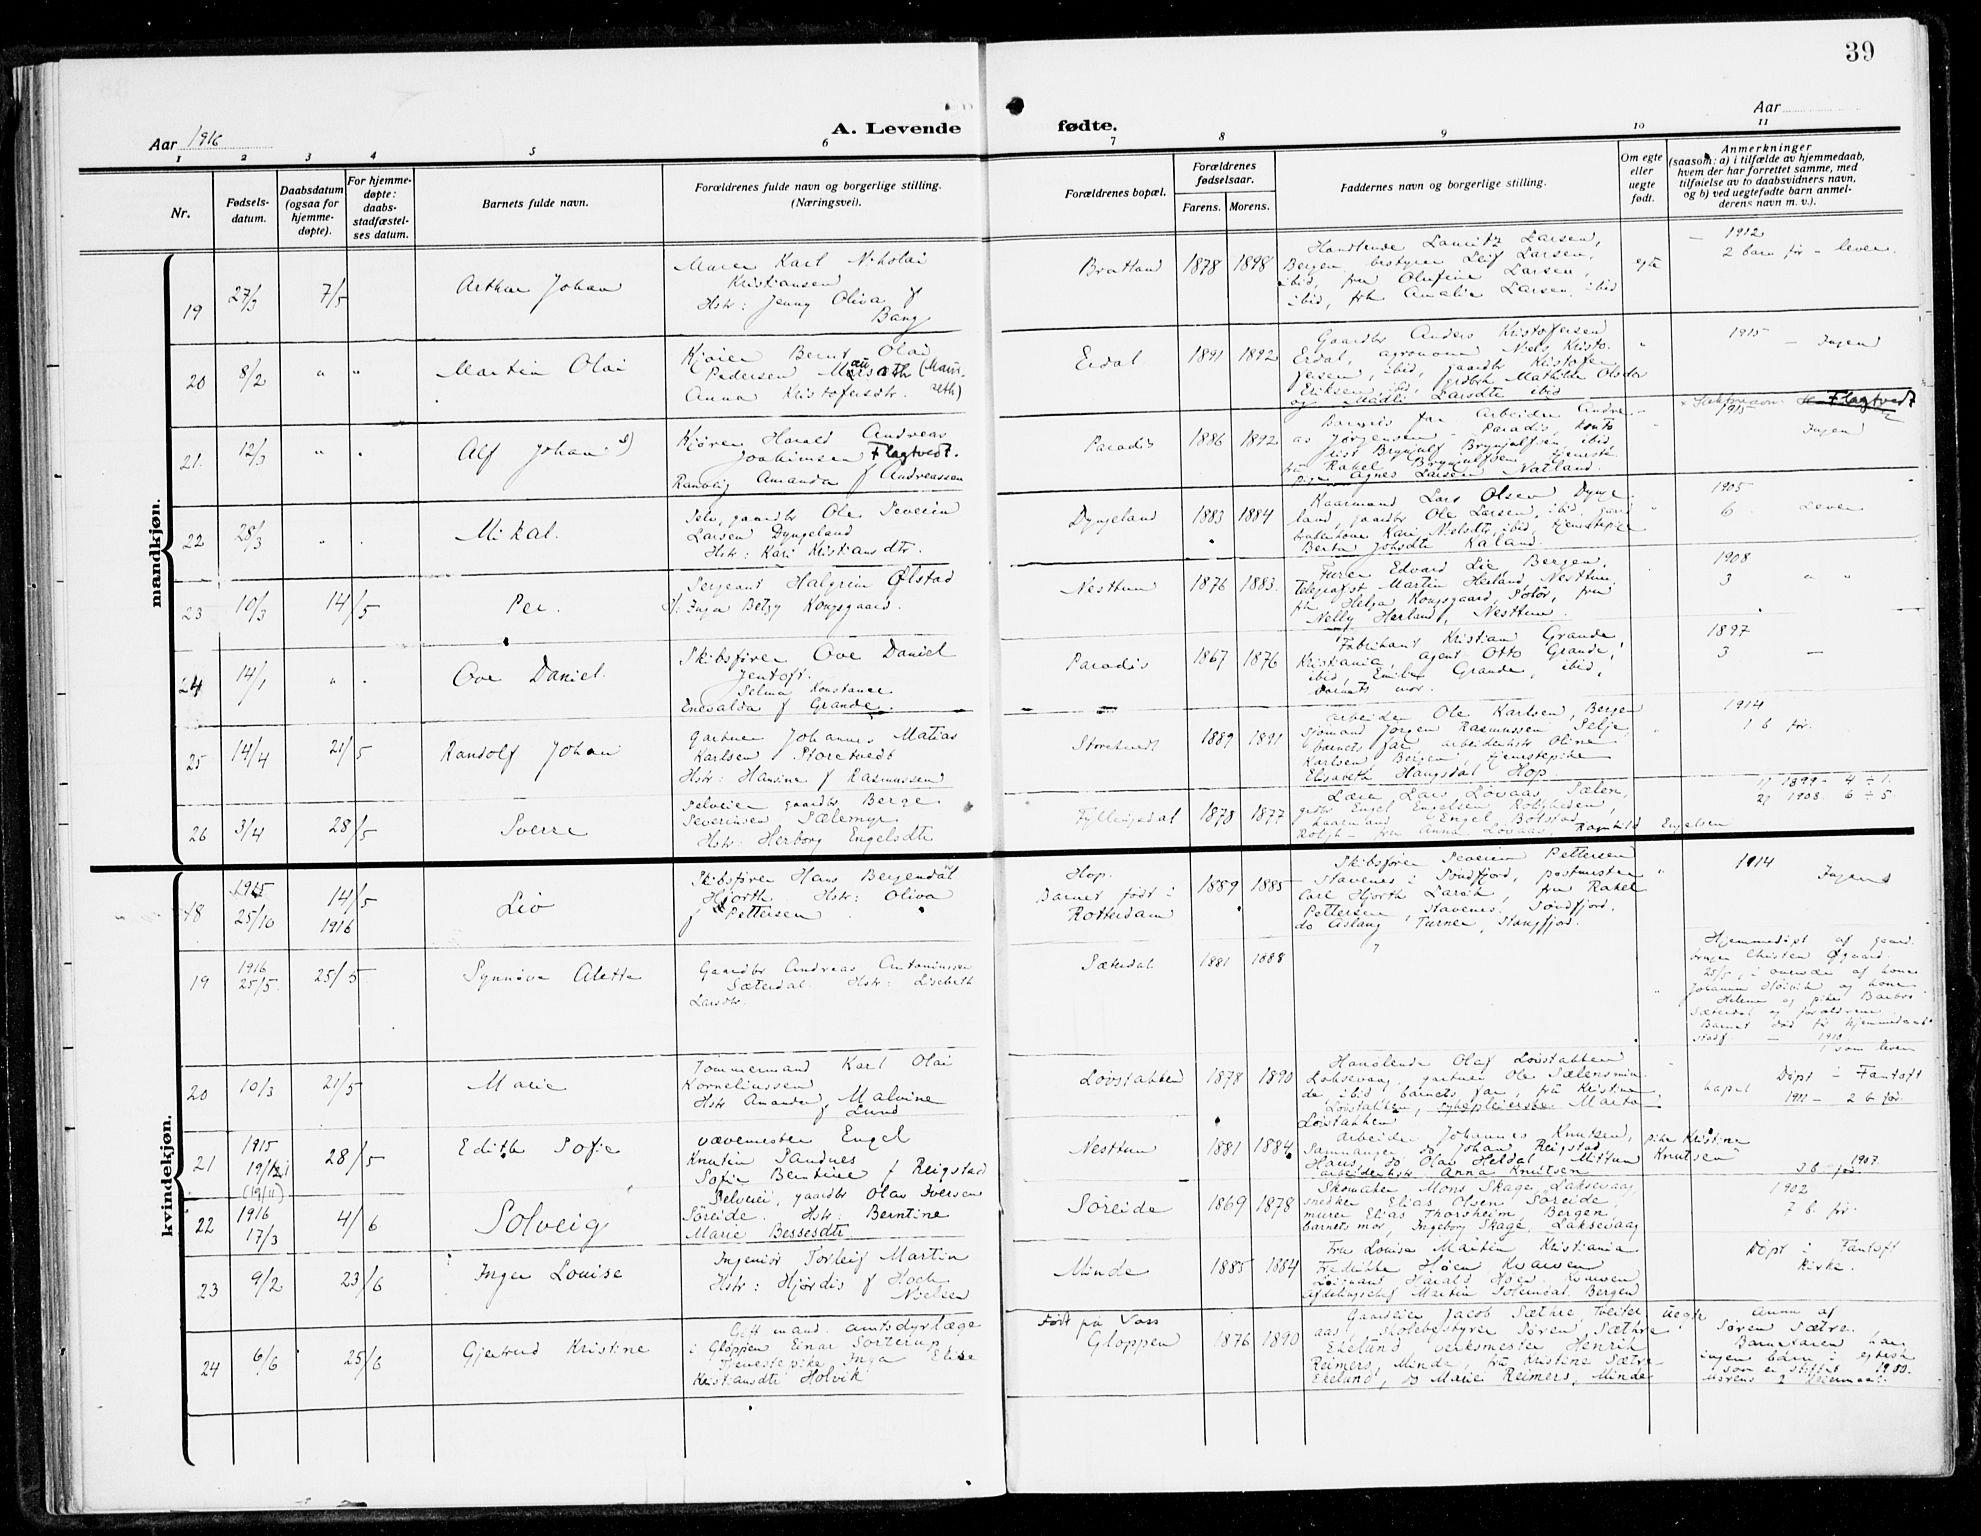 39
Aar 1916
A. Levende fødte.
Aar
1 2 3 4 5 6 7 8 9 10 11
Nr.
Fødsels-
datum.
Daabsdatum
(ogsaa for
hjemme-
døpte).
For hjemme-
døpte:
daabs-
stadfæstel-
ses datum.
Barnets fulde navn.
Forældrenes fulde navn og borgerlige stilling.
(Næringsvei).
Forældrenes bopæl.
Forældrenes
fødselsaar.
Farens. Morens.
Faddernes navn og borgerlige stilling.
Om egte
eller
uegte
født.
Anmerkninger
(saasom: a) i tilfælde av hjemmedaab,
hvem der har forrettet samme, med
tilføielse av to daabsvidners navn,
og b) ved uegtefødte barn anmel-
derens navn m. v.).
mandkjøn.
19 27/3 7/5 Arthur Johan
Maler Karl Nikolai
Kristiansen
Hstr: Jenny Oliva f
Bang
Bratland 1878 1898
Handlende Lauritz Larsen,
Bergen, bestyrer Leif Larsen,
ibid, fru Olufine Larsen,
ibid, frk Amalie Larsen ibid
egte
1912
2 barn før - lever
20 8/2 " " Martin Olai
Kjøier Bernt Olai
Pedersen
Anna Kristofersdtr.
Erdal 1891 1892
Gaardbr Anders Kristofersen
Erdal, agronom Niels Kristo-
fersen, ibid, gaardbr Kristofer
Eriksen ibid, Mathilde Olsdtr
og Madli Larsdtr ibid
"
1915
- Ingen
21. 12/3 " " Alf Johan
Kjører Harald Andreas
Joakimsen Flagtvedt.
Amanda f Andreassen
Paradis 1886 1892
Barnets far, arbeider Andre-
as Jørgensen - Paradis, konto
rist Brynjulf Brynjulfsen, ibid,
fru Rakel Brynjulfsen, tjeneste
pige Agnes Larsen Natland.
Flagtvedt
1915
Ingen
22 28/3 " " Mikal.
Selv. gaardbr Ole Severin
Larsen Dyngeland
Hstr: Kari Kristiansdtr.
Dyngeland 1883 1884
Kaarmand Lars Olsen Dynge-
land, gaardbr Ole Larsen, ibid, gaard
brukerkone Kari Nielsdtr, ibid, tjenestepike
Berta Johsdtr Kaland.
"
1905
6 Lever
23 10/3 14/5 Per.
Sergeant Halgrim Ølstad
f. Inga Betzy Kongsgaard.
Nesttun 1876 1883.
Furer Edvard Lie Bergen,
Telegrafist Martin Herland, Nesttun,
frk Helga Kongsgaard, Solør, fru
Nelly Herland, Nesttun.
1908
3 " "
24 14/1 " " Ove Daniel.
Skibsfører Ove Daniel
Jentoft.
Selma Konstance
Enevalda f Grande.
Paradis 1867 1876
Fabrikant Kristian Grande,
Kristiania, agent Otto Grande,
ibid, Emilie Grande, ibid,
barnets mor.
1897
3 -
25 14/4 21/5 Randolf Johan
Gartner Johannes Matias
Karlsen Storetvedt
Hstr: Hansine f Rasmussen
Storetvedt 1889 1891
Arbeider Ole Karlsen, Bergen
sjømand Jørgen Rasmussen Selje,
barnets far, arbeiderhstr Oline
Karlsen, Bergen, tjenestepike
Elisabeth Haugsdal Hop.
"
1914
1 b før.
26 3/4 28/5 Sverre
Selveier gaardbr Berge
Severinsen Sælemyr
Hstr: Herborg Engelsdtr
Fyllingsdal 1870 1877
Lærer Lars Løvaas, Sælen,
grdbr Engel Engelsen, Roligheden,
kaarmand Engel Bolstad
Roligh- fru Anna Løvaas, Ragnhild Engelsen
1) 1899 - 4 ÷ 1.
2) 1908. 6 ÷ 5
kvindekjøn.
18 1915 25/10 14/5 1916 Liv
Skibsfører Hans Bergendal
Hjorth Hstr: Oliva
f Pettersen
Hop.
Barnet født i
Rotterdam
1889 1885
Skibsfører Severin Pettersen
Stavenes i Søndfjord, postmester
Carl Hjorth Larvik, fru Rakel
Pettersen, Stavenes, Søndfjord.
do Aslaug Turner, Stongfjord.
"
1914
Ingen
19 1916 25/5. 25/5 Synnøve Alette
Gaardbr Andreas Antoniussen
Sæterdal. Hstr: Lisebeth
Larsdtr.
Sæterdal 1881 1888
"
Hjemmedøpt af gaard-
bruger Christen Øgaard
25/5, i overvær af kone
Johanna Høivik og kone
Helene og piken Barbro
Sæterdal og forældrene
Barnet død før hjemmedaab
stadf. - 1910
1 som lever
20 10/3 21/5 Marie
Tømmermand Karl Olai
Korneliussen
Hstr Amanda, Malvine
f Lund
Løvstakken 1878 1890
Handlende Olaf Løvstakken
Laksevaag, gartner Ole Sælensmin-
de, ibid, barnets far, fru Kristine
Løvstakken, sykepleierske Marta
Løvstakken
kapel
Døpt i Fantoft
1911 - 2 b før.
21 1915 19/12 (19/11) 28/5 Edith Sofie
Vævemester Engel
Knutin Sandnes
Sofie Bentine f Reigstad
Nesttun 1881 1884
Arbeider Johannes Knutsen, pike Kristine
Samnanger, do Johan Reigstad, Knutsen
Haus, do Olav Heldal Midttun
arbeiderhstr Anna Knutsen
1907
3 b før
22 1916 17/3 4/6 Solveig
Selveiei, gaardbr Olav Iversen
Søreide. Hstr: Berntine
Marie Bessesdtr
Søreide 1869 1878
Skomaker Mons Skage, Laksevaag
snedker Elias Olsen Søreide,
murer Elias Thorsheim, Bergen,
barnets mor, Ingeborg Skage, Laksevaag
1902
7 b. før.
23 9/2 23/6 Inger Louise
Ingeniør Torleif Martin
Hstr: Hjørdis f Hoch
Nielsen
Minde 1885 1884
Fru Louise Martin, Kristiania
Fredrikke Høen, Kvarven
Løitnant Harald Høen, Kvarven
afdelingschef Martin Solemdal, Bergen
Døpt i Fantoft
Kirke.
24 6/6 25/6 Gjertrud Kristine
Gift mand. amtsdyrlæge
i Gloppen Einar Sorterup
Tjenestepike Inga Elise
Kristiansdtr Holvik
Født på Voss
Gloppen 1876 1890
Gaardeier Jacob Sæthre, Tveiter
aas, skolebestyrer Søren Sæthre
Ekeland verksmester Henrik
Reimers, Minde, fru Kristine Sætre
Ekeland, do Marie Reimers, Minde
Uegte
Anm af
Søren Sætre.
Barnefaren har
ingen barn i egtesk
som er stiftet 1909.
Morens 2 leiermaal.